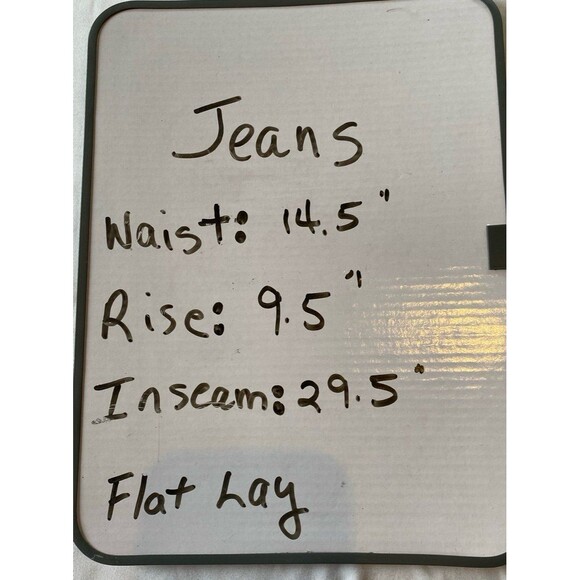 Jeans
Waist: 14.5"
Rise: 9.5"
Inseam: 29.5"
Flat Lay